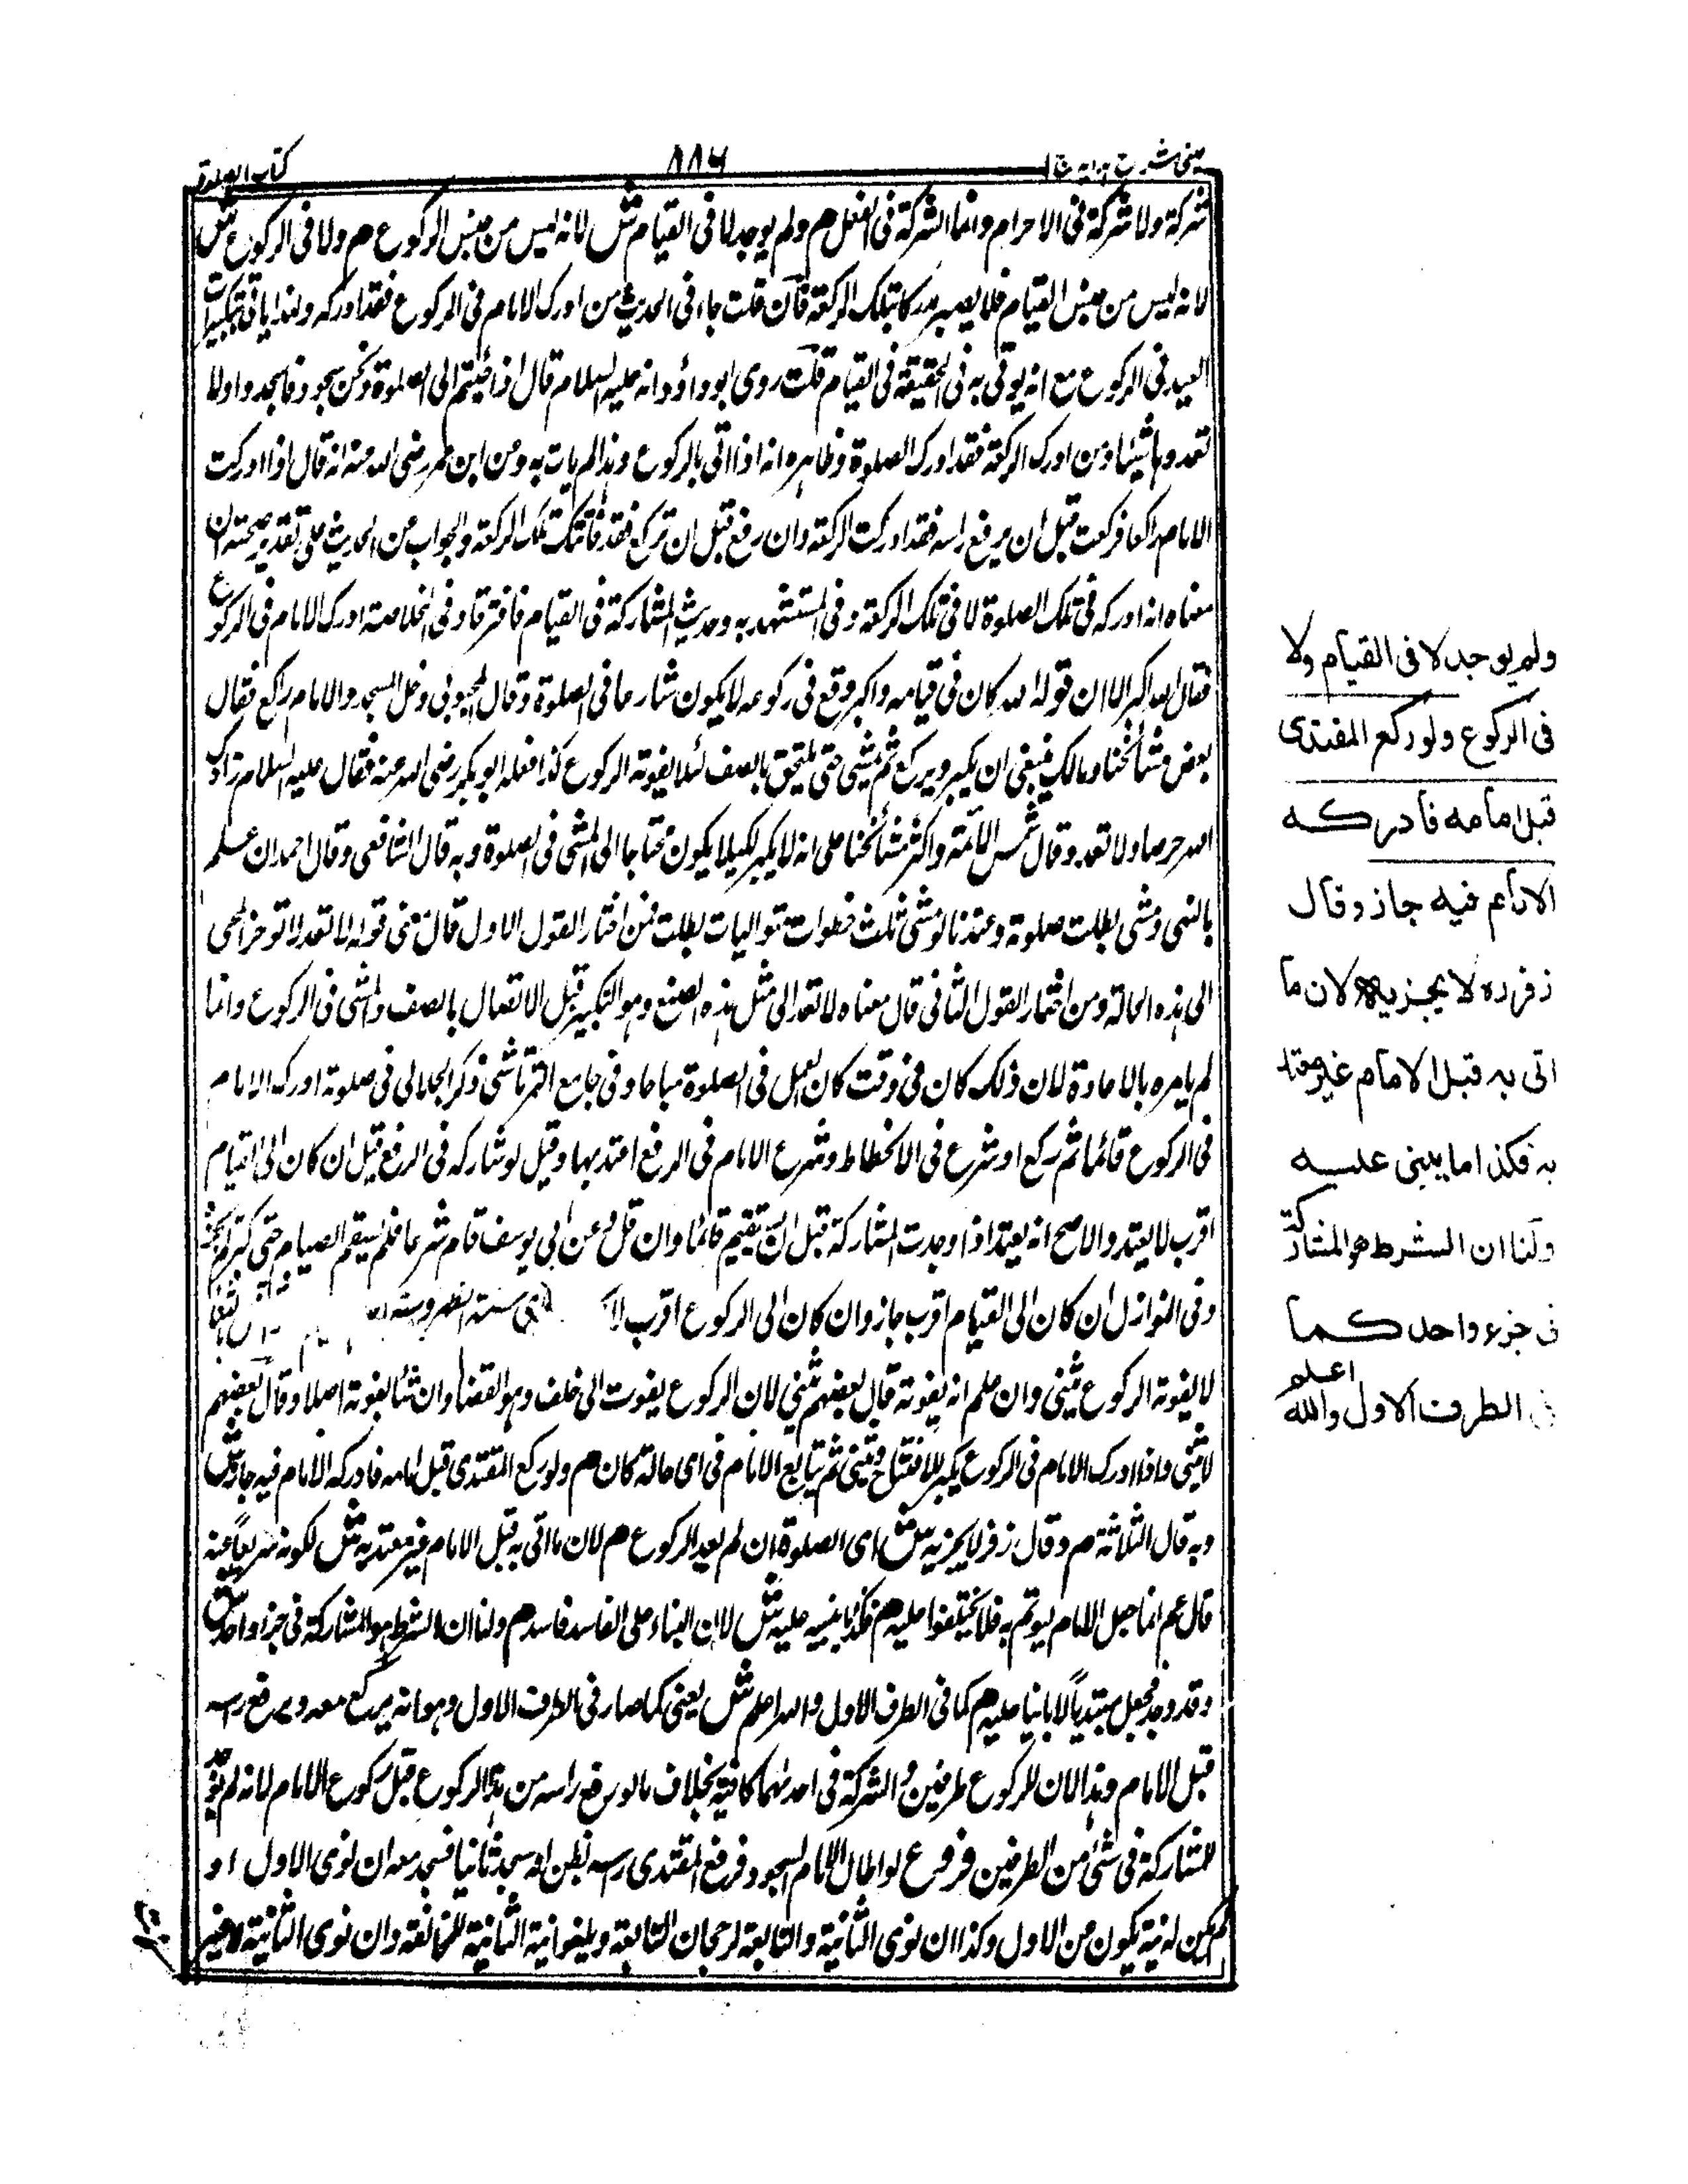 عینی شرح ہدایہ ج ۱
۸۸۶
کتاب الصلوة
شركة ولا شركة فى الاحرام وانما الشركة فى الفعل م ولم يوجد لا فى القيام ش لانه ليس من جنس الركوع م ولا فى الركوع ش
لانه ليس من جنس القيام فلا يصير مدركا تلك الركعة فان قلت جاء فى الحديث من ادرك الامام فى الركوع فقد ادركه ولهذا ياتى تكبيرات
العيد فى الركوع مع انه يوتى به فى الحقيقة فى القيام قلت روى ابو داؤد انه عليه السلام قال اذا جئتم الى الصلوة ونحن سجود فاسجدوا ولا
تعدوها شيئا ومن ادرك الركعة فقد ادرك الصلوة وظاهره انه اذا اتى بالركوع وهذا لم يات به وعن ابن عمر رضى الله عنه انه قال اذا ادركت
الامام راكعا فركعت قبل ان يرفع راسه فقد ادركت الركعة وان رفع قبل ان تركع فقد فاتتك تلك الركعة والجواب عن الحديث على تقدير صحته ان
معناه انه ادركه فى تلك الصلوة لا فى تلك الركعة وفى المستشهد به وحديث المشاركة فى القيام فافترقا وفى الخلاصة ادرك الامام فى الركوع
فقال الله اكبر الا ان قوله الله كان فى قيامه واكبر وقع فى ركوعه لا يكون شارعا فى الصلوة وقال المحبوبى دخل المسجد والامام راكع فقال
بعض مشائخنا ومالك ينبغى ان يكبر ويركع ثم يمشى حتى يلتحق بالصف لئلا يفوته الركوع كذا فعله ابو بكر رضى الله عنه فقال عليه السلام زادك
الله حرصا ولا تعد وقال شمس الائمة واكثر مشائخنا على انه لا يكبر لكيلا يكون محتاجا الى المشى فى الصلوة وبه قال الشافعى وقال احمد ان علم
بالنهى ومشى بطلت صلوته وعندنا لو مشى ثلث خطوات متواليات بطلت فمن اختار القول الاول قال معنى قوله لا تعد لا توخر المجى
الى هذه الحالة ومن اختار القول الثانى قال معناه لا تعد الى مثل هذه الصنع وهو التكبير قبل الاتصال بالصف والمشى فى الركوع وانما
لم يامره بالاعادة لان ذلك كان فى وقت كان العمل فى الصلوة مباحا وفى جامع التمرتاشى ذكر الجلابى فى صلوته ادرك الامام
فى الركوع قائما ثم ركع او شرع فى الانحطاط وشرع الامام فى الرفع اعتد بها وقيل لو شاركه فى الرفع قيل ان كان الى القيام
اقرب لا يعتد والاصح انه يعتد اذا وجدت المشاركة قبل ان يستقيم قائما وان قل وعن ابى يوسف قام
وفى النوازل ان كان الى القيام اقرب جاز وان كان الى الركوع اقرب لا
لا يفوته الركوع يثنى وان علم انه يفوته قال بعضهم يثنى لان الركوع يفوت الى خلف وهو القضاء وان ثنا يفوته اصلا وقال بعضهم
لا يثنى واذا ادرك الامام فى الركوع يكبر للافتتاح ويثنى ثم يتابع الامام فى اى حالة كان م ولو ركع المقتدى قبل امامه فادركه الامام فيه جاز ش
وبه قال الثلاثة م وقال زفر لا يجزيه ش اى الصلوة ان لم يعد الركوع م لان ما اتى به قبل الامام غير معتد به ش لكونه منهيا عنه
قال عم انما جعل الامام ليوتم به فلا تختلفوا عليه م فكذا ما يبنيه عليه ش لان البناء على الفاسد فاسد م ولنا ان الشرط هو المشاركة فى جزء واحد ش
وقد وجد فجعل مبتديا لا بانيا عليه م كما فى الطرف الاول والله اعلم ش يعنى كما صار فى الطرف الاول وهو انه يركع معه ويرفع راسه
قبل الامام وهذا لان للركوع طرفين والشركة فى احدهما كافية بخلاف ما لو رفع راسه من هذا الركوع قبل ركوع الامام لانه لم يوجد
المشاركة فى شئ من الطرفين فروع لو اطال الامام السجود فرفع المقتدى راسه يظن انه سجد ثانيا فسجد معه ان نوى الاول او
لم يكن له نية يكون من الاول وكذا ان نوى الثانية والمتابعة لرجحان المتابعة ويلغو نية الثانية للمخالفة وان نوى الثانية لا غير
ولم يوجد لا فى القيام ولا
فى الركوع ولو ركع المقتدى
قبل امامه فادركه
الامام فيه جاز وقال
زفر لا يجزيه لان ما
اتى به قبل الامام غير معتد
به فكذا ما يبنى عليه
ولنا ان الشرط هو المشاركة
فى جزء واحد كما
فى الطرف الاول والله اعلم